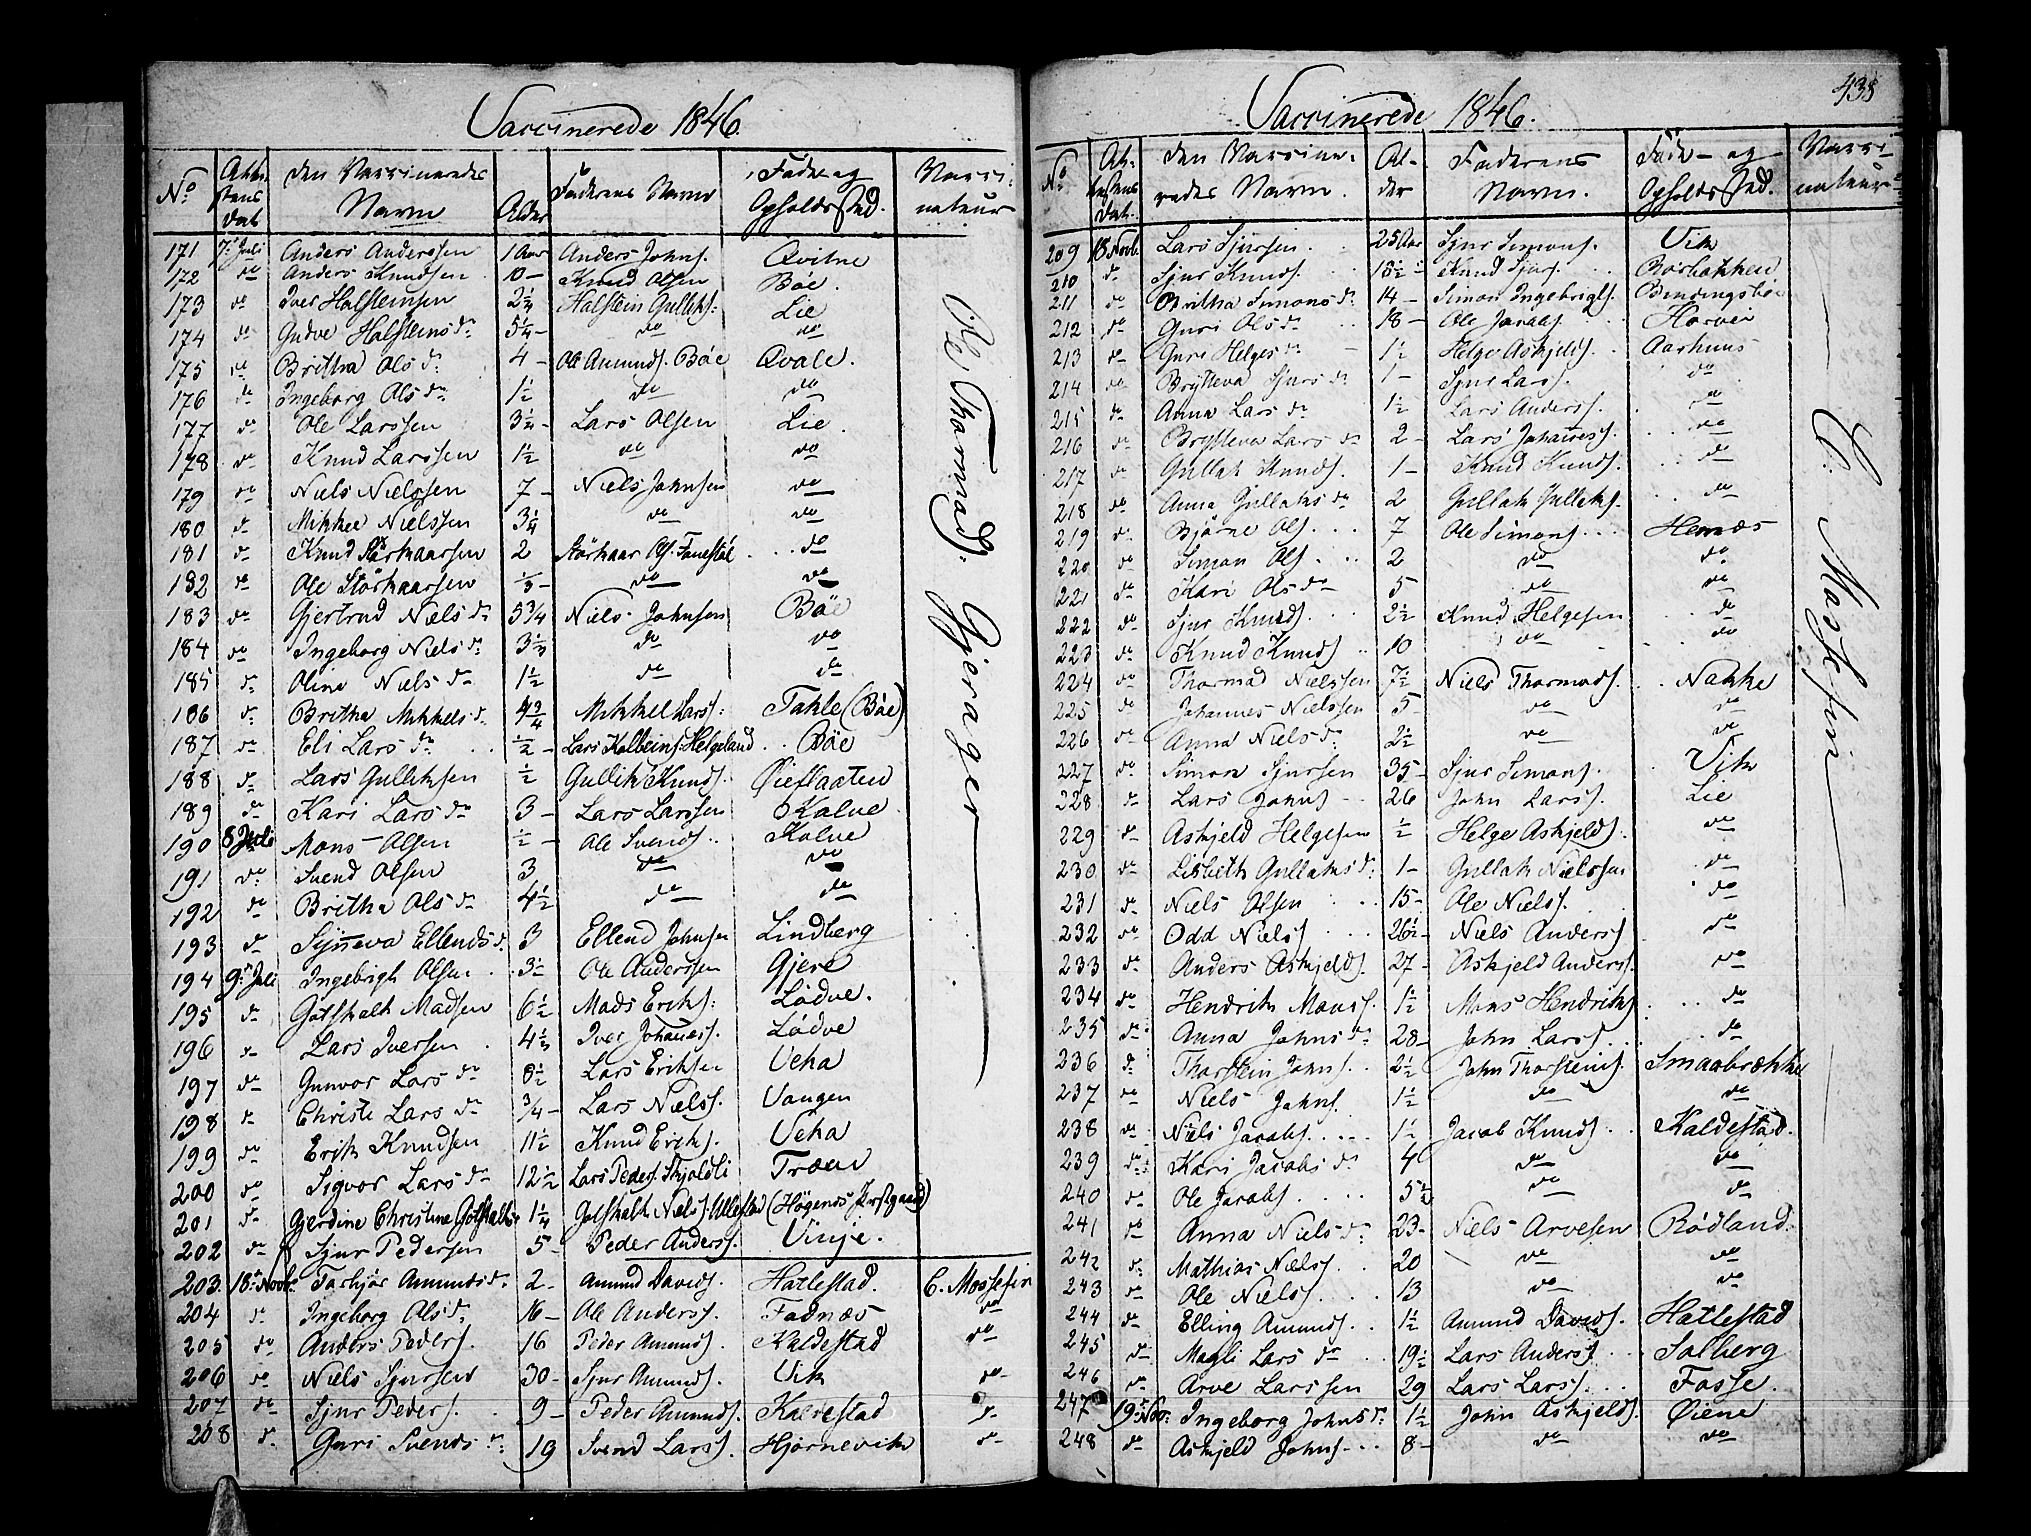 Vaccinerede 1846.
No Attestens Dat. den Vaccineredes Navn Alder Faderens Navn Føde og Opholds Sted. Vaccinateur
171 7de Juli Anders Anderssen 1 Aar Anders Johns. Qvitne
172 do Anders Knudsen 10 - Knud Olsen Bøe.
173 do Iver Halsteinsen 2 1/4 Halstein Gulliks: Lie
174 do Gudve Halsteinsdr 5 1/4 - do do
175 do Britha Olsdr 4 - Ole Amunds. Bøe Qvale.
176 do Ingeborg Olsdr 1 1/2 do do
177 do Ole Larssen 3 1/2 - Lars Olsen Lie.
178 do Knud Larssen 1 1/2 do do
179 do Niels Nielssen 7 - Niels Johnsen do
180 do Mikkel Nielssen 3 1/4 do do
181 do Knud Størkaarsen 2 Størkaar Ols. Fonestøl do
182 do Ole Størkaarsen 1/3 - do do
183 do Gjertrud Nielsdr 5 3/4 Niels Johnsen Bøe
184 do Ingeborg Nielsdr 3 1/4 do do
185 do Oline Nielsdr 1 1/2 do do
186 do Britha Mikkelsdr 4 3/4 Mikkel Lars: Takle (Bøe)
187 do Eli Larsdr 1/2 - Lars Kolbeins. Helgeland Bøe
188 do Lars Gulliksen 1/2 Gullik Knuds. Øieflaaten
189 do Kari Larsdr 3 - Lars Larssen Kalve
190 8 Juli Mons Olsen 1/2 - Ole Svends. Kolve
191 do Svend Olsen 3 do do
192 do Britha Olsdr 4 1/2 do do
193 do Synneva Ellendsdr 3 Ellend Johnsen Lindberg
194 9de Juli Ingebrigt Olsen 3 1/2 Ole Anderssen Gjere
195 do Gotskalk Madsen 6 1/2 Mads Eriks: Lødve.
196 do Lars Iversen 4 1/2 Iver Johaness. Lødve
197 do Gunvor Larsdr 8 1/2 Lars Eriksen Veka
198 do Christi Larsdr 3/4 - Lars Niels. Vangen
199 do Erik Knudsen 11 1/2 Knud Eriks. Veka
200 do Sigvor Larsdr 12 1/2 Lars Peders. Skjoldli Træen
201 do Gjerdine Christine Gotskalksdr 1 1/4 Gotskalk Niels. Ullestad (Høgenes Præstgaard)
202 do Sjur Pedersen 5 - Peder Anders. Vinje.
203 18de Novbr Torbjør Amundsdr 2 - Amund Davids. Hatlestad. C. Mossefin
204 do Ingeborg Olsdr 16 - Ole Anders. Fadnæs do
205 do Anders Peders. 16 Peder Amunds. Kaldestad do
206 do Niels Sjursen 30 - Sjur Amunds. Vik do
207 do Sjur Peders. 9 - Peder Amunds. Kaldestad do
208 do Guri Svendsdr 19 Svend Larss. Hjørnevik do
Gjerager
Vaccinerede 1846.
438
No Attestens Dat. den Vaccineredes Navn. Alder Faderens Navn. Føde- og Opholds Sted. Vaccinateur
209 18 Novb. Lars Sjursen 25 Aar Sjur Simons. Vik
210 do Sjur Knuds. 18 1/2 Knud Sjurs. Borbakken
211 do Britha Simonsdr 14 - Simon Ingebrigts. Bendingsbøe
212 do Guri Olsdr 18 - Ole Jacobs. Horvei
213 do Guri Helgesdr 1 1/2 Helge Askjelds. Aarhuus
214 do Brytteva Sjursdr 1 - Sjur Lars. do
215 do Anna Larsdr 1 1/2 Lars Anders. do
216 do Brytteva Larsdr 2 - Lars Johaness. do
217 do Gullak Knuds. 1 - Knud Knuds. do
218 do Anna Gullaksdr 2 Gullak Gullaks. do
219 do Bjørne Ols. 7 Ole Simons. Hernæs
220 do Simon Ols. 2 do do
221 do Kari Olsdr 5 do do
222 do Sjur Knuds. 2 1/2 Knud Helgesen do
223 do Knud Knuds. 10 do do
224 do Thormod Nielssen 7 1/2 Niels Thormods. Nakke
225 do Johannes Nielssen 5 - do do
226 do Anna Nielsdr 2 1/2 do do
227 do Simon Sjursen 35 - Sjur Simons. Vik
228 do Lars Johns. 26 John Larss. Lie
229 do Askjeld Helgesen 1/2 Helge Askjelds. do
230 do Lisbeth Gullaksdr 1 - Gullak Nielssen do
231 do Niels Olsen 15 - Ole Niels. do
232 do Odd Niels. 26 1/2 - Niels Anders. do
233 do Anders Askjelds. 27 - Askjeld Anders. do
234 do Hendrik Mons. 1 1/2 Mons Hendriks. do
235 do Anna Johnsdr 28 - John Larss. do
236 do Thorstein Johns. 2 1/2 John Thorsteins. Smaabrække
237 do Niels Johns. 1 1/2 do do
238 do Niels Jacobs. 1 1/2 Jacob Knuds. Kaldestad.
239 do Kari Jacobsdr 4 do do
240 do Ole Jacobs. 5 1/2 do do
241 do Anna Nielsdr 23 - Niels Arvesen Rødland.
242 do Mathias Niels. 20 do do
243 do Ole Niels. 13 do do
244 do Elling Amunds. 1 1/2 Amund Davids. Hatlestad
245 do Magli Larsdr 19 1/2 Lars Anders. Solberg
246 do Arve Larssen 29 Lars Larss. Fosse.
247 19de Nov: Ingeborg Johnsdr 1 1/2 John Askjelds. Øiene
248 do Askjeld Johns. 8 - do do
C. Mossefin